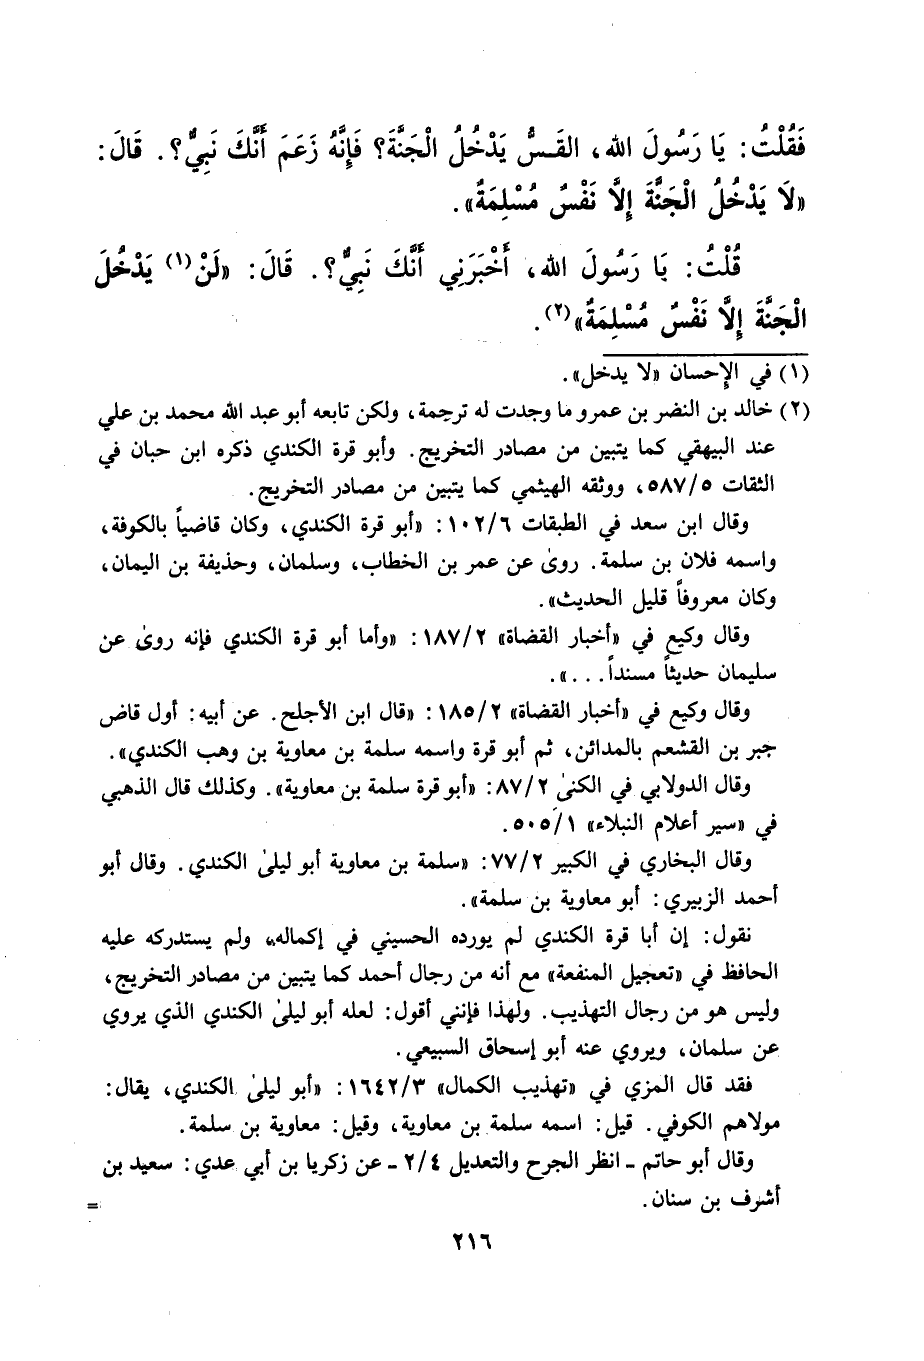 فَقُلْتُ: يَا رَسُولَ الله، القَسُّ يَدْخُلُ الْجَنَّةَ؟ فَإِنَّهُ زَعَمَ أَنَّكَ نَبِيٌّ؟. قَالَ:
«لَا يَدْخُلُ الْجَنَّةَ إِلَّا نَفْسٌ مُسْلِمَةٌ».
قُلْتُ: يَا رَسُولَ الله، أَخْبَرَنِي أَنَّكَ نَبِيٌّ؟. قَالَ: «لَنْ(١) يَدْخُلَ
الْجَنَّةَ إِلَّا نَفْسٌ مُسْلِمَةٌ»(٢).
(١) في الإحسان «لا يدخل».
(٢) خالد بن النضر بن عمرو ما وجدت له ترجمة، ولكن تابعه أبو عبد الله محمد بن علي
عند البيهقي كما يتبين من مصادر التخريج. وأبو قرة الكندي ذكره ابن حبان في
الثقات ٥٨٧/٥، ووثقه الهيثمي كما يتبين من مصادر التخريج.
وقال ابن سعد في الطبقات ١٠٢/٦: «أبو قرة الكندي، وكان قاضياً بالكوفة،
واسمه فلان بن سلمة. روىٰ عن عمر بن الخطاب، وسلمان، وحذيفة بن اليمان،
وكان معروفاً قليل الحديث».
وقال وكيع في «أخبار القضاة» ١٨٧/٢: «وأما أبو قرة الكندي فإنه روىٰ عن
سليمان حديثاً مسنداً. . .».
وقال وكيع في «أخبار القضاة» ١٨٥/٢: «قال ابن الأجلح. عن أبيه: أول قاض
جبر بن القشعم بالمدائن، ثم أبو قرة واسمه سلمة بن معاوية بن وهب الكندي».
وقال الدولابي في الكنىٰ ٨٧/٢: «أبو قرة سلمة بن معاوية». وكذلك قال الذهبي
في «سير أعلام النبلاء» ٥٠٥/١.
وقال البخاري في الكبير ٧٧/٢: «سلمة بن معاوية أبو ليلىٰ الكندي. وقال أبو
أحمد الزبيري: أبو معاوية بن سلمة».
نقول: إن أبا قرة الكندي لم يورده الحسيني في إكماله، ولم يستدركه عليه
الحافظ في «تعجيل المنفعة» مع أنه من رجال أحمد كما يتبين من مصادر التخريج،
وليس هو من رجال التهذيب. ولهذا فإنني أقول: لعله أبو ليلىٰ الكندي الذي يروي
عن سلمان، ويروي عنه أبو إسحاق السبيعي.
فقد قال المزي في «تهذيب الكمال» ١٦٤٢/٣: «أبو ليلىٰ الكندي، يقال:
مولاهم الكوفي. قيل: اسمه سلمة بن معاوية، وقيل: معاوية بن سلمة.
وقال أبو حاتم - انظر الجرح والتعديل ٢/٤ - عن زكريا بن أبي عدي: سعيد بن
أشرف بن سنان.
=
٢١٦